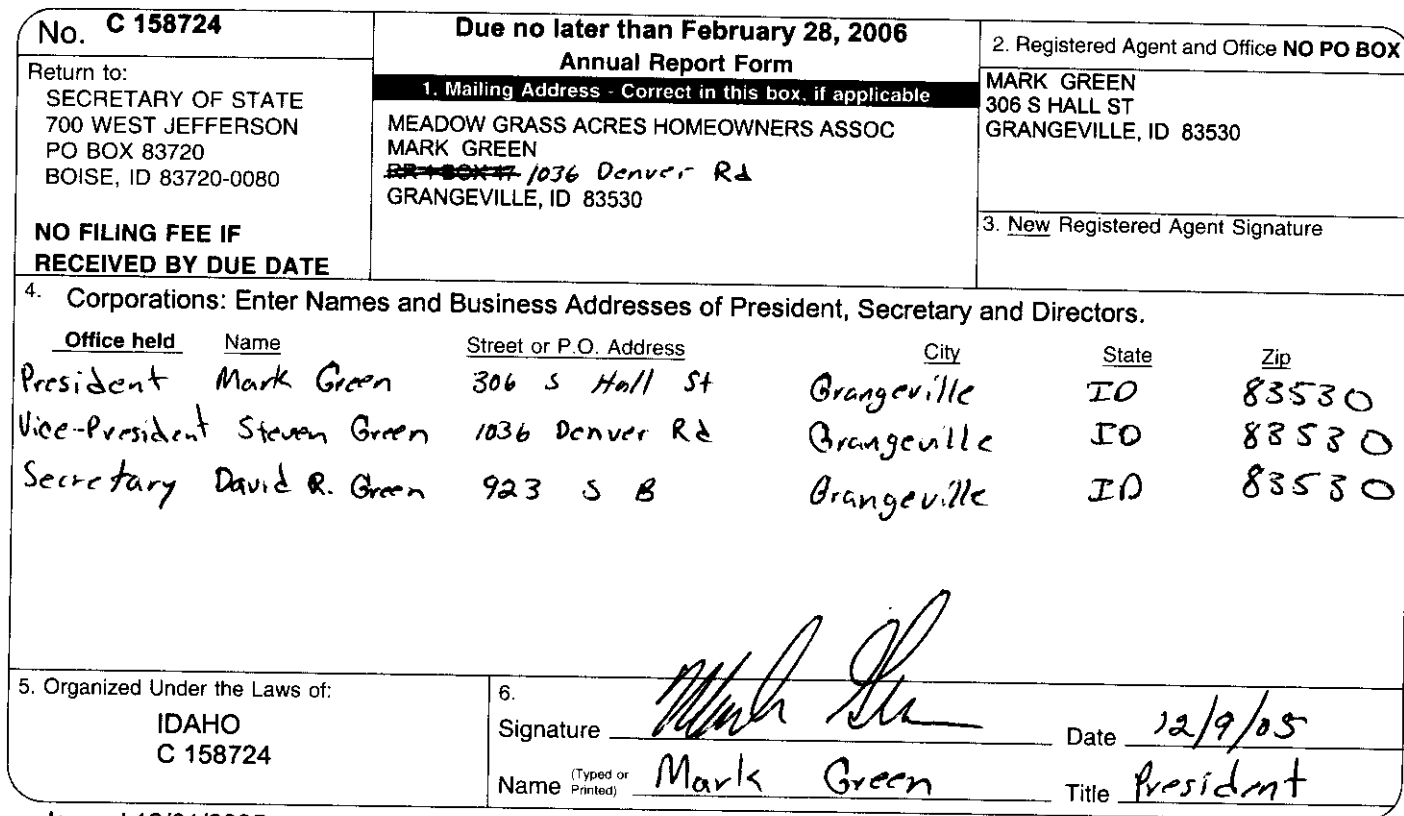 No. C 158724
Return to:
SECRETARY OF STATE
700 WEST JEFFERSON
PO BOX 83720
BOISE, ID 83720-0080
NO FILING FEE IF
RECEIVED BY DUE DATE
Due no later than February 28, 2006
Annual Report Form
1. Mailing Address - Correct in this box, if applicable
MEADOW GRASS ACRES HOMEOWNERS ASSOC
MARK GREEN
1036 Denver Rd
GRANGEVILLE, ID 83530
2. Registered Agent and Office NO PO BOX
MARK GREEN
306 S HALL ST
GRANGEVILLE, ID 83530
3. New Registered Agent Signature
4. Corporations: Enter Names and Business Addresses of President, Secretary and Directors.
Office held Name Street or P.O. Address City State Zip
President Mark Green 306 S Hall St Grangeville ID 83530
Vice-President Steven Green 1036 Denver Rd Grangeville ID 83530
Secretary David R. Green 923 S B Grangeville ID 83530
5. Organized Under the Laws of:
IDAHO
C 158724
6.
Signature Mark Green Date 12/9/05
Name (Typed or Printed) Mark Green Title President